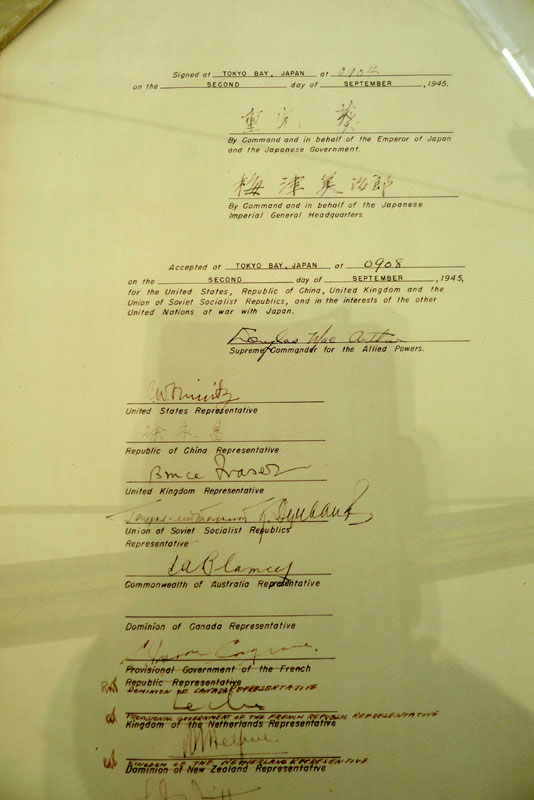 Signed at TOKYO BAY, JAPAN at 0904
on the SECOND day of SEPTEMBER , 1945.
重光 葵
By Command and in behalf of the Emperor of Japan
and the Japanese Government.
梅津美治郎
By Command and in behalf of the Japanese
Imperial General Headquarters.
Accepted at TOKYO BAY, JAPAN at 0908
on the SECOND day of SEPTEMBER , 1945,
for the United States, Republic of China, United Kingdom and the
Union of Soviet Socialist Republics, and in the interests of the other
United Nations at war with Japan.
Douglas MacArthur
Supreme Commander for the Allied Powers.
C.W. Nimitz
United States Representative
徐永昌
Republic of China Representative
Bruce Fraser
United Kingdom Representative
Union of Soviet Socialist Republics
Representative
T.A. Blamey
Commonwealth of Australia Representative
Dominion of Canada Representative
Cosgrave.
Provisional Government of the French
Republic Representative
DOMINION OF CANADA REPRESENTATIVE
Leclerc
PROVISIONAL GOVERNMENT OF THE FRENCH REPUBLIC REPRESENTATIVE
Kingdom of the Netherlands Representative
Helfrich
KINGDOM OF THE NETHERLANDS REPRESENTATIVE
Dominion of New Zealand Representative